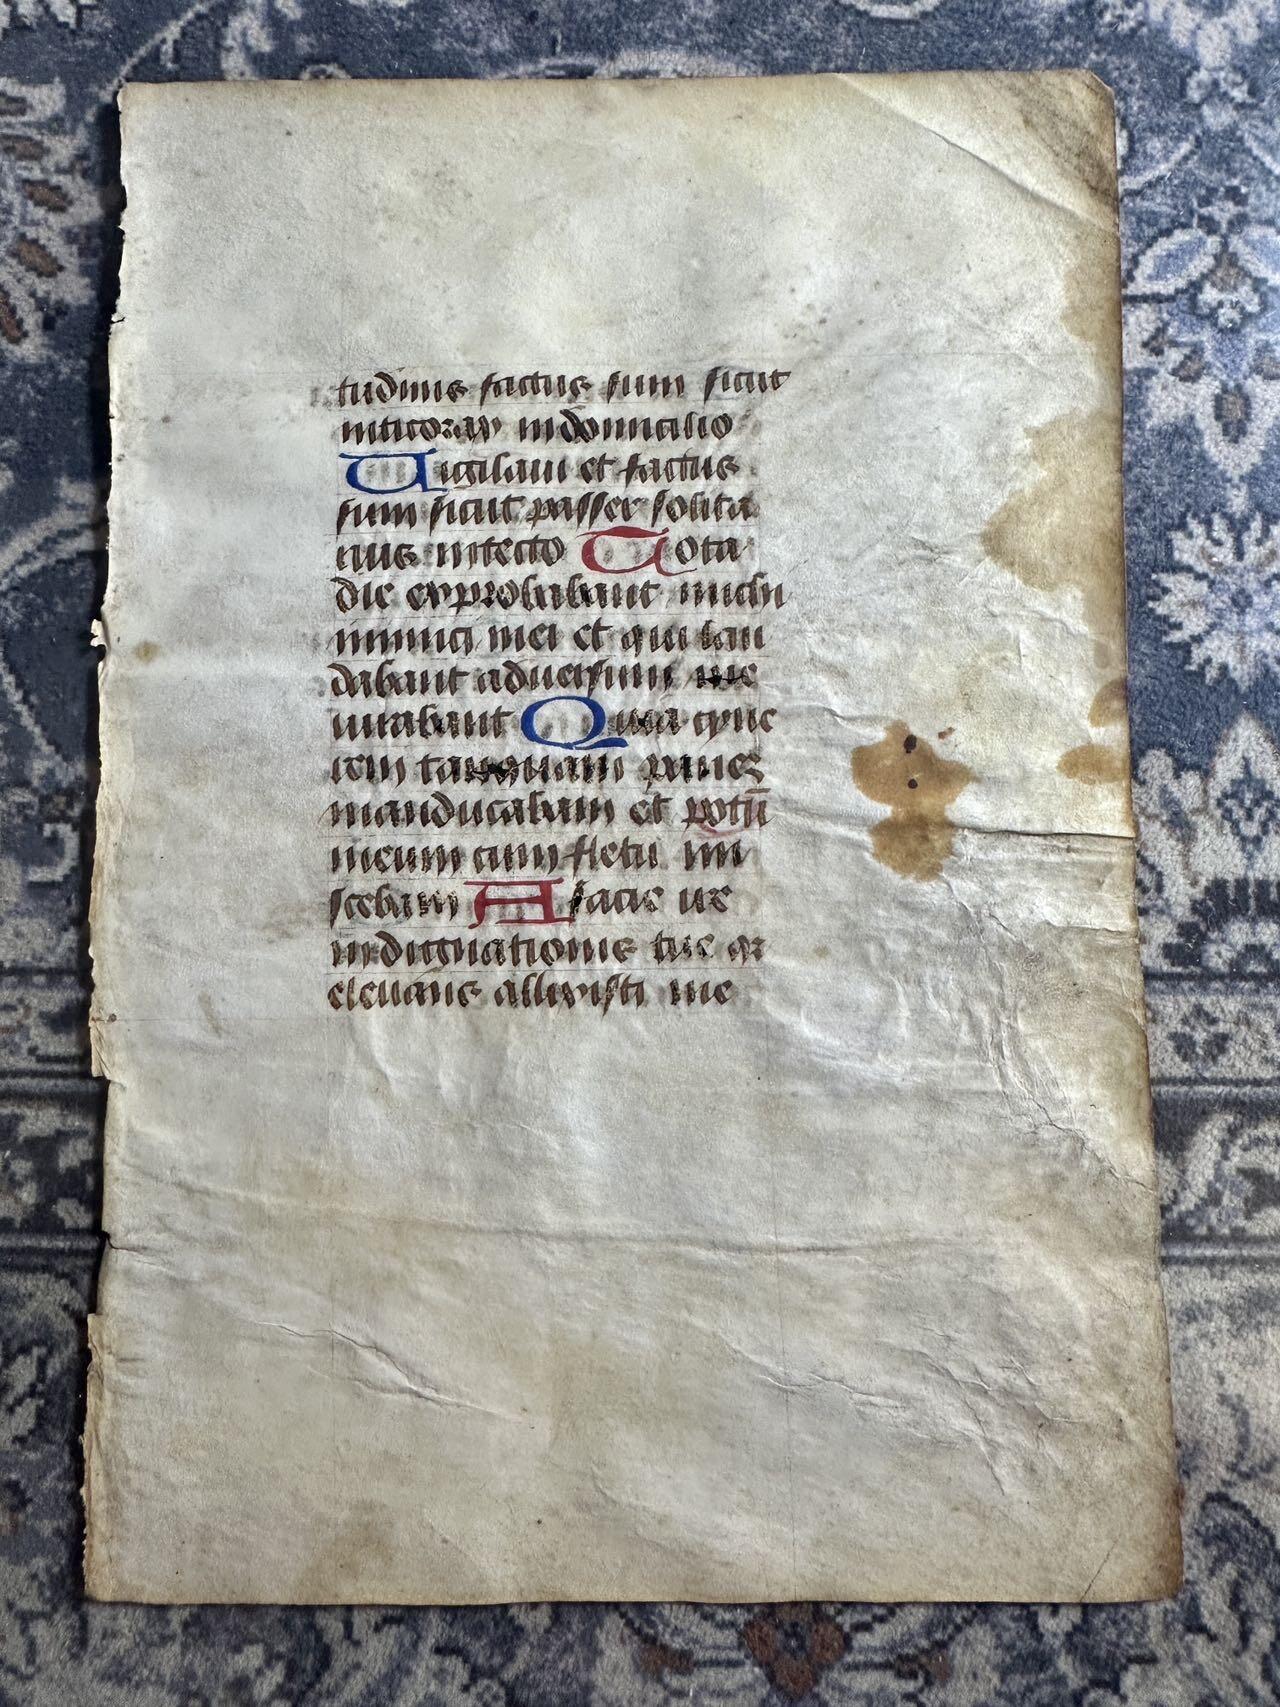 tudinis factus sum sicut
niticorax in domicilio
Vigilaui et factus
sum sicut passer solita
rius in tecto Tota
die exprobrabant michi
inimici mei et qui lau
dabant aduersum me
iurabant Quia cyne
rem tanquam panez
manducabam et potū
meum cum fletu mi
scebam A facie ire
indignationis tue qr
eleuans allixisti me